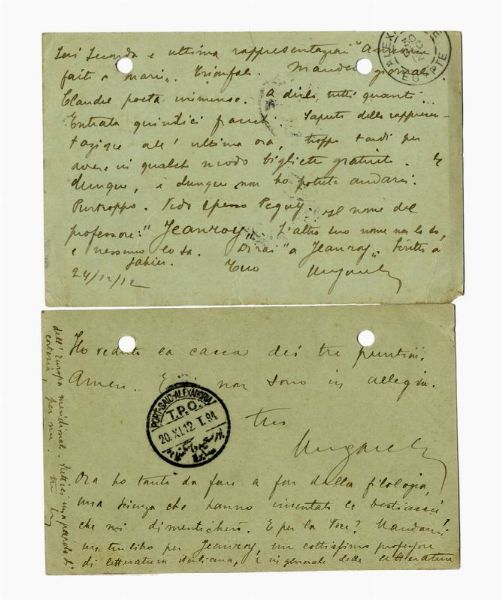 Ieri seconda e ultima rappresentazione "Annonce
faite à Marie". Trionfale. Manderò giornali.
Claudel poeta immenso. A dirlo tutti quanti...
Entrata quindici franchi. Saputo della rappresen-
tazione all'ultima ora, troppo tardi per
avere in qualche modo biglietto gratuito. E
dunque, e dunque non ho potuto andarci.
Purtroppo. Vedo spesso Péguy. Il nome del
professore: "Jeanroy". L'altro suo nome non lo so,
e nessuno lo sa. Dirai "a Jeanroy". Scritto a
Jahier. Tuo Ungaretti
24/12/12
ALEX
EGYPTE
Ho veduto la cacca dei tre puntini.
Amen. E non sono in allegria.
tuo
Ungaretti
PORT-SAID-ALEXANDRIA
T.P.O.
20.XI.12 T.94
Ora ho tanto da fare a far della filologia,
una scienza che hanno inventato le bestiacce
che mi dimenticherò. E per la Voce? Mandami
un tuo libro per Jeanroy, un coltissimo professore
di letteratura italiana, e in generale delle letterature
dell'Europa meridionale.